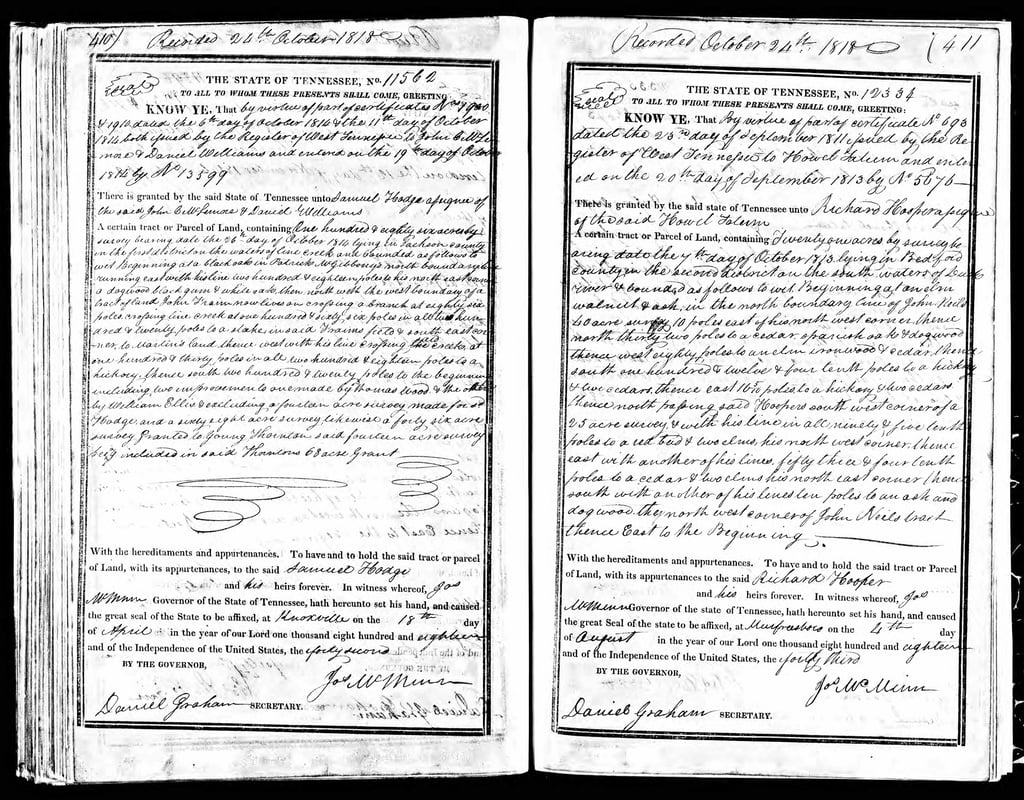 410
Recorded 24th October 1818
Seal
THE STATE OF TENNESSEE, No. 11562
TO ALL TO WHOM THESE PRESENTS SHALL COME, GREETING:
KNOW YE, That by virtue of part of certificates No
& 1910 dated the 6th day of October 1814 & the 11th day of October
1814 both issued by the Register of West Tennessee to John C McLe
more & Daniel Williams and enterd on the 19th day of October
1814 by No 13599
There is granted by the said State of Tennessee unto Samuel Hodge assignee of
the said John C McLemore & Daniel Williams
A certain tract or Parcel of Land, containing One hundred & eighty six acres by
survey bearing date the 26th day of October 1814 lying in Jackson county
in the first district on the waters of line creek and bounded as follows to
wit Beginning at a black oak in Patrick McGibbony's north boundary line
running east with his line two hundred & eighteen poles to his north east
a dogwood black gum & white oak, then north with the west boundary of a
tract of land John Train now lives on crossing a branch at eighty six
poles crossing line creek at one hundred & sixty six poles in all two hun
dred & twenty poles to a stake in said Trains field & south east cor
ner to Martins land thence west with his line crossing the creek at
one hundred & thirty poles in all two hundred & eighteen poles to a
hickory, thence south two hundred & twenty poles to the beginning
including two improvements one made by Thomas Wood & the other
by William Ellis & excluding a fourteen acre survey made for sd
Hodge and a sixty eight acre survey likewise a forty six acre
survey Granted to Young Thornton said fourteen acre survey
being included in said Thorntons 68 acre Grant
With the hereditaments and appurtenances. To have and to hold the said tract or parcel
of Land, with its appurtenances, to the said Samuel Hodge
and his heirs forever. In witness whereof, Jos
McMinn Governor of the State of Tennessee, hath hereunto set his hand, and caused
the great seal of the State to be affixed, at Knoxville on the 18th day
of April in the year of our Lord one thousand eight hundred and eighteen
and of the Independence of the United States, the forty second
BY THE GOVERNOR,
Jos McMinn
Daniel Graham SECRETARY.
Recorded October 24th 1818
411
Seal
THE STATE OF TENNESSEE, No. 12334
TO ALL TO WHOM THESE PRESENTS SHALL COME, GREETING:
KNOW YE, That By virtue of part of certificate No 693
dated the 23rd day of September 1811 issued by the Re
gister of West Tennessee to Howel Tatum and enter
ed on the 20th day of September 1813 by No 5676
There is granted by the said state of Tennessee unto Richard Hooper assignee
of the said Howel Tatum
A certain tract or Parcel of Land, containing Twenty one acres by survey be
aring date the 7th day of October 1813 lying in Bedford
county in the second district on the south waters of Duck
river & bounded as follows to wit. Beginning at an elm
walnut & ash, in the north boundary line of John Neils
40 acre survey 10 poles east of his north west corner thence
north thirty two poles to a cedar spanish oak & dogwood
thence west eighty poles to an elm ironwood & cedar, thence
south one hundred & twelve & four tenth poles to a hickory
& two cedars, thence east poles to a hickory & two cedars
thence north passing said Hoopers south west corner of a
25 acre survey & with his line in all ninety & five tenth
poles to a red bud & two elms, his north west corner, thence
east with another of his lines, fifty three & four tenth
poles to a cedar & two elms his north east corner thence
south with another of his lines ten poles to an ash and
dogwood, the north west corner of John Neils tract
thence East to the Beginning
With the hereditaments and appurtenances. To have and to hold the said tract or Parcel
of Land, with its appurtenances to the said Richard Hooper
and his heirs forever. In witness whereof, Jos
McMinn Governor of the State of Tennessee, hath hereunto set his hand, and caused
the great Seal of the state to be affixed, at Murfreesboro on the 4th day
of August in the year of our Lord one thousand eight hundred and eighteen
and of the Independence of the United States, the forty third
BY THE GOVERNOR,
Jos McMinn
Daniel Graham SECRETARY.